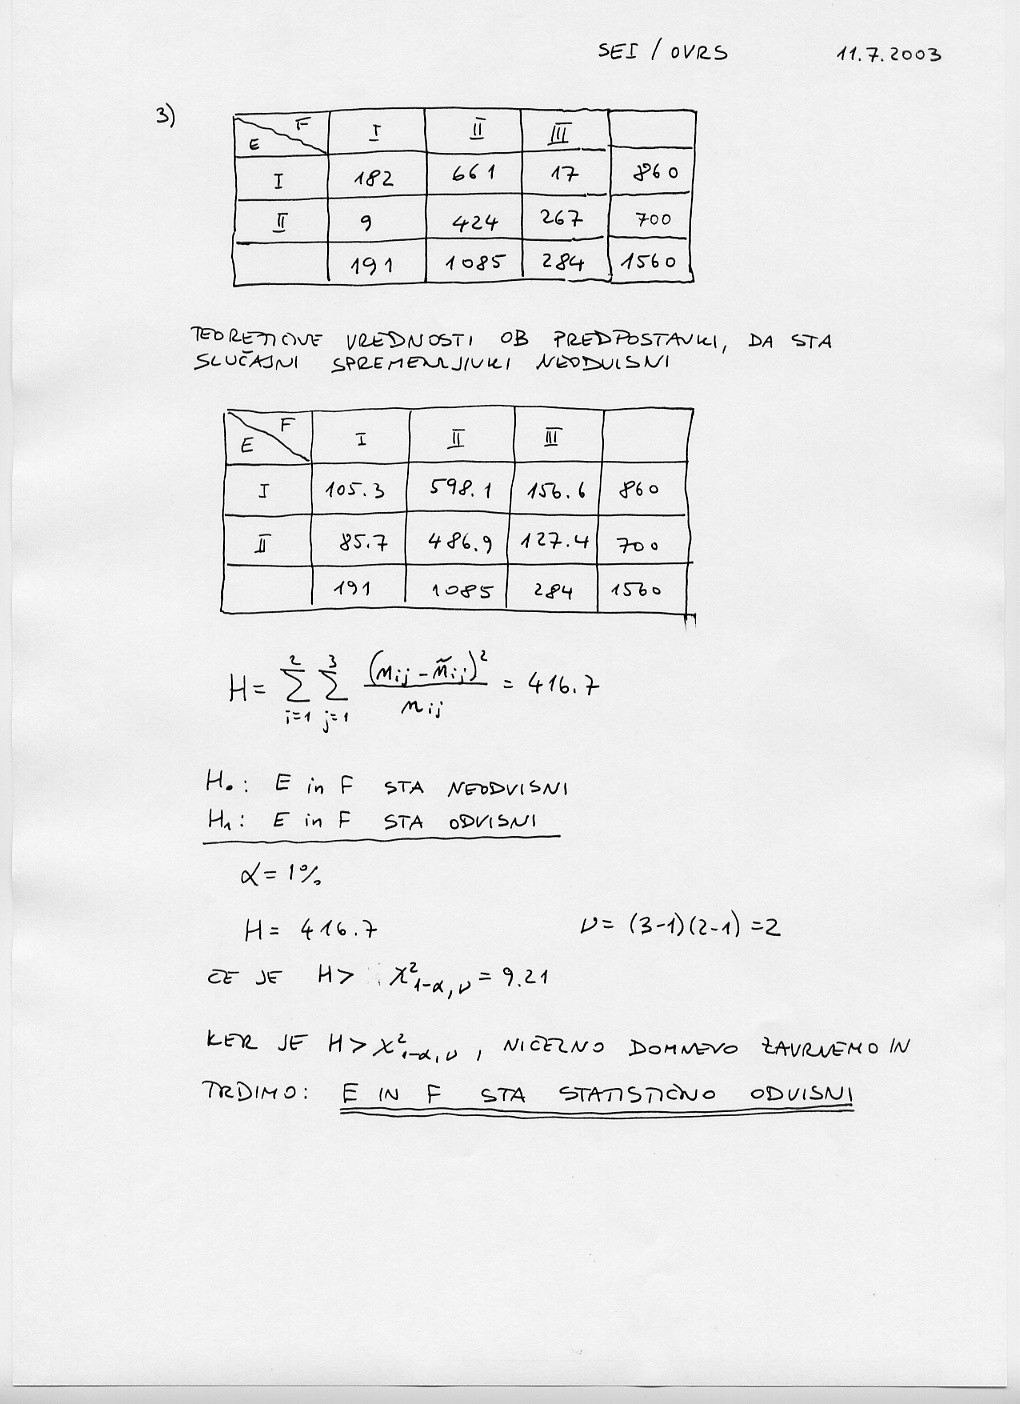 SEI / OVRS 11.7.2003
3)
E F I II III
I 182 661 17 860
II 9 424 267 700
191 1085 284 1560
TEORETIČNE VREDNOSTI OB PREDPOSTAVKI, DA STA
SLUČAJNI SPREMENLJIVKI NEODVISNI
E F I II III
I 105.3 598.1 156.6 860
II 85.7 486.9 127.4 700
191 1085 284 1560
H = ∑_{i=1}^{2} ∑_{j=1}^{3} (n_{ij} - ñ_{ij})² / n_{ij} = 416.7
H₀: E in F STA NEODVISNI
H₁: E in F STA ODVISNI
α = 1%
H = 416.7 ν = (3-1)(2-1) = 2
ČE JE H > χ²_{1-α, ν} = 9.21
KER JE H > χ²_{1-α, ν}, NIČELNO DOMNEVO ZAVRNEMO IN
TRDIMO: E IN F STA STATISTIČNO ODVISNI